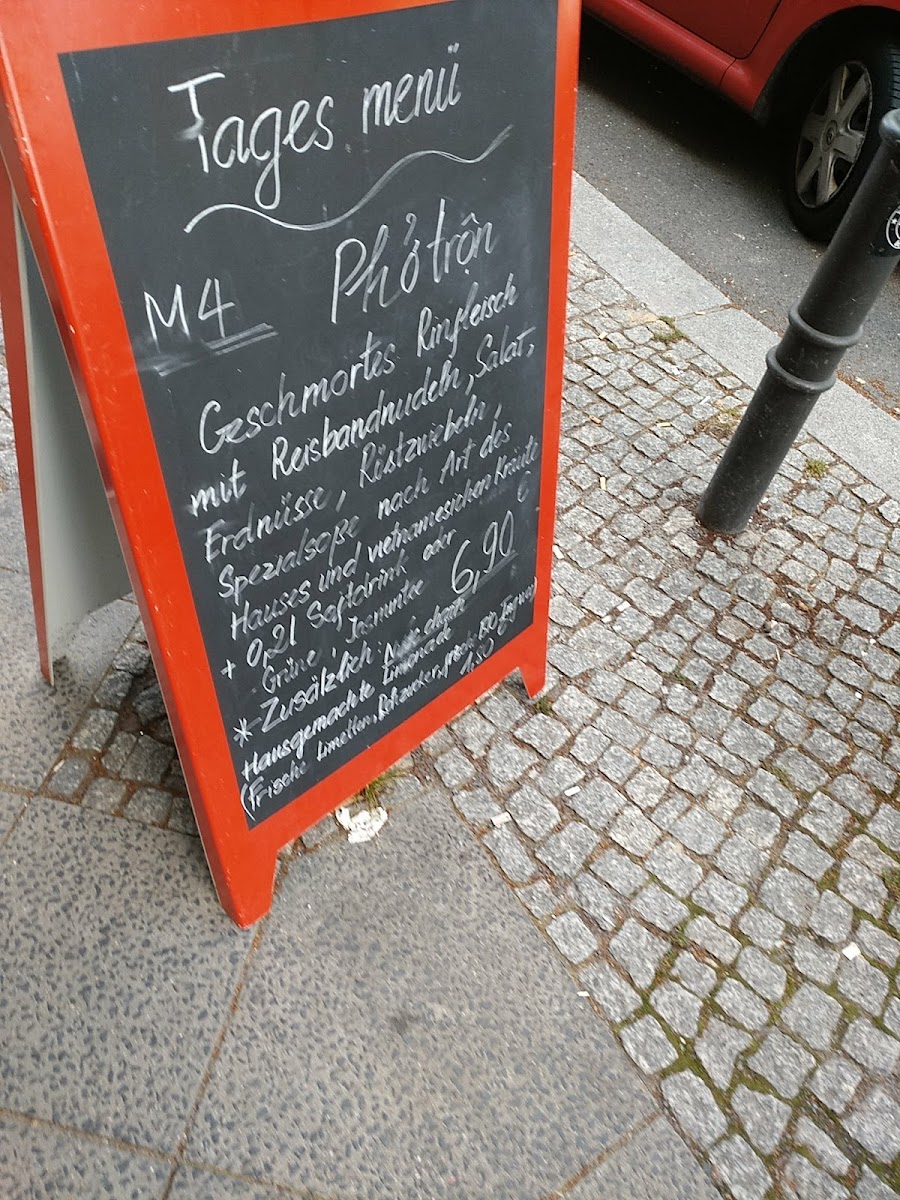 Tages menü
Phở trộn
M4
Geschmortes Rinfleisch
mit Reisbandnudeln, Salat,
Erdnüsse, Röstzwiebeln,
Spezialsoße nach Art des
Hauses und vietnamesichen Kräute
+ 0,2l Saftdrink oder
Grüne, Jasmintee 6,90 €
* Zusätzlich:
Hausgemachte Limonade
(Frische Limetten, Rohzucker, frische BIO Ingwer)
1.50